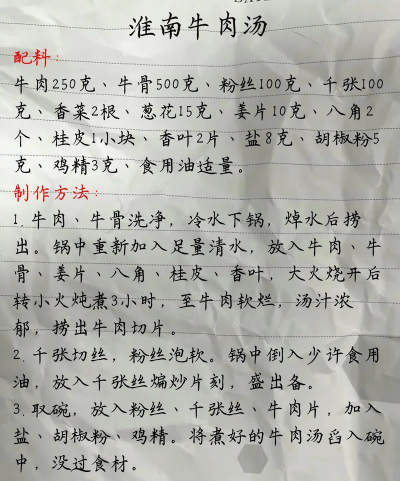 淮南牛肉汤
配料：
牛肉250克、牛骨500克、粉丝100克、千张100
克、香菜2根、葱花15克、姜片10克、八角2
个、桂皮1小块、香叶2片、盐8克、胡椒粉5
克、鸡精3克、食用油适量。
制作方法：
1.牛肉、牛骨洗净，冷水下锅，焯水后捞
出。锅中重新加入足量清水，放入牛肉、牛
骨、姜片、八角、桂皮、香叶，大火烧开后
转小火炖煮3小时，至牛肉软烂，汤汁浓
郁，捞出牛肉切片。
2.千张切丝，粉丝泡软。锅中倒入少许食用
油，放入千张丝煸炒片刻，盛出备。
3.取碗，放入粉丝、千张丝、牛肉片，加入
盐、胡椒粉、鸡精。将煮好的牛肉汤舀入碗
中，没过食材。